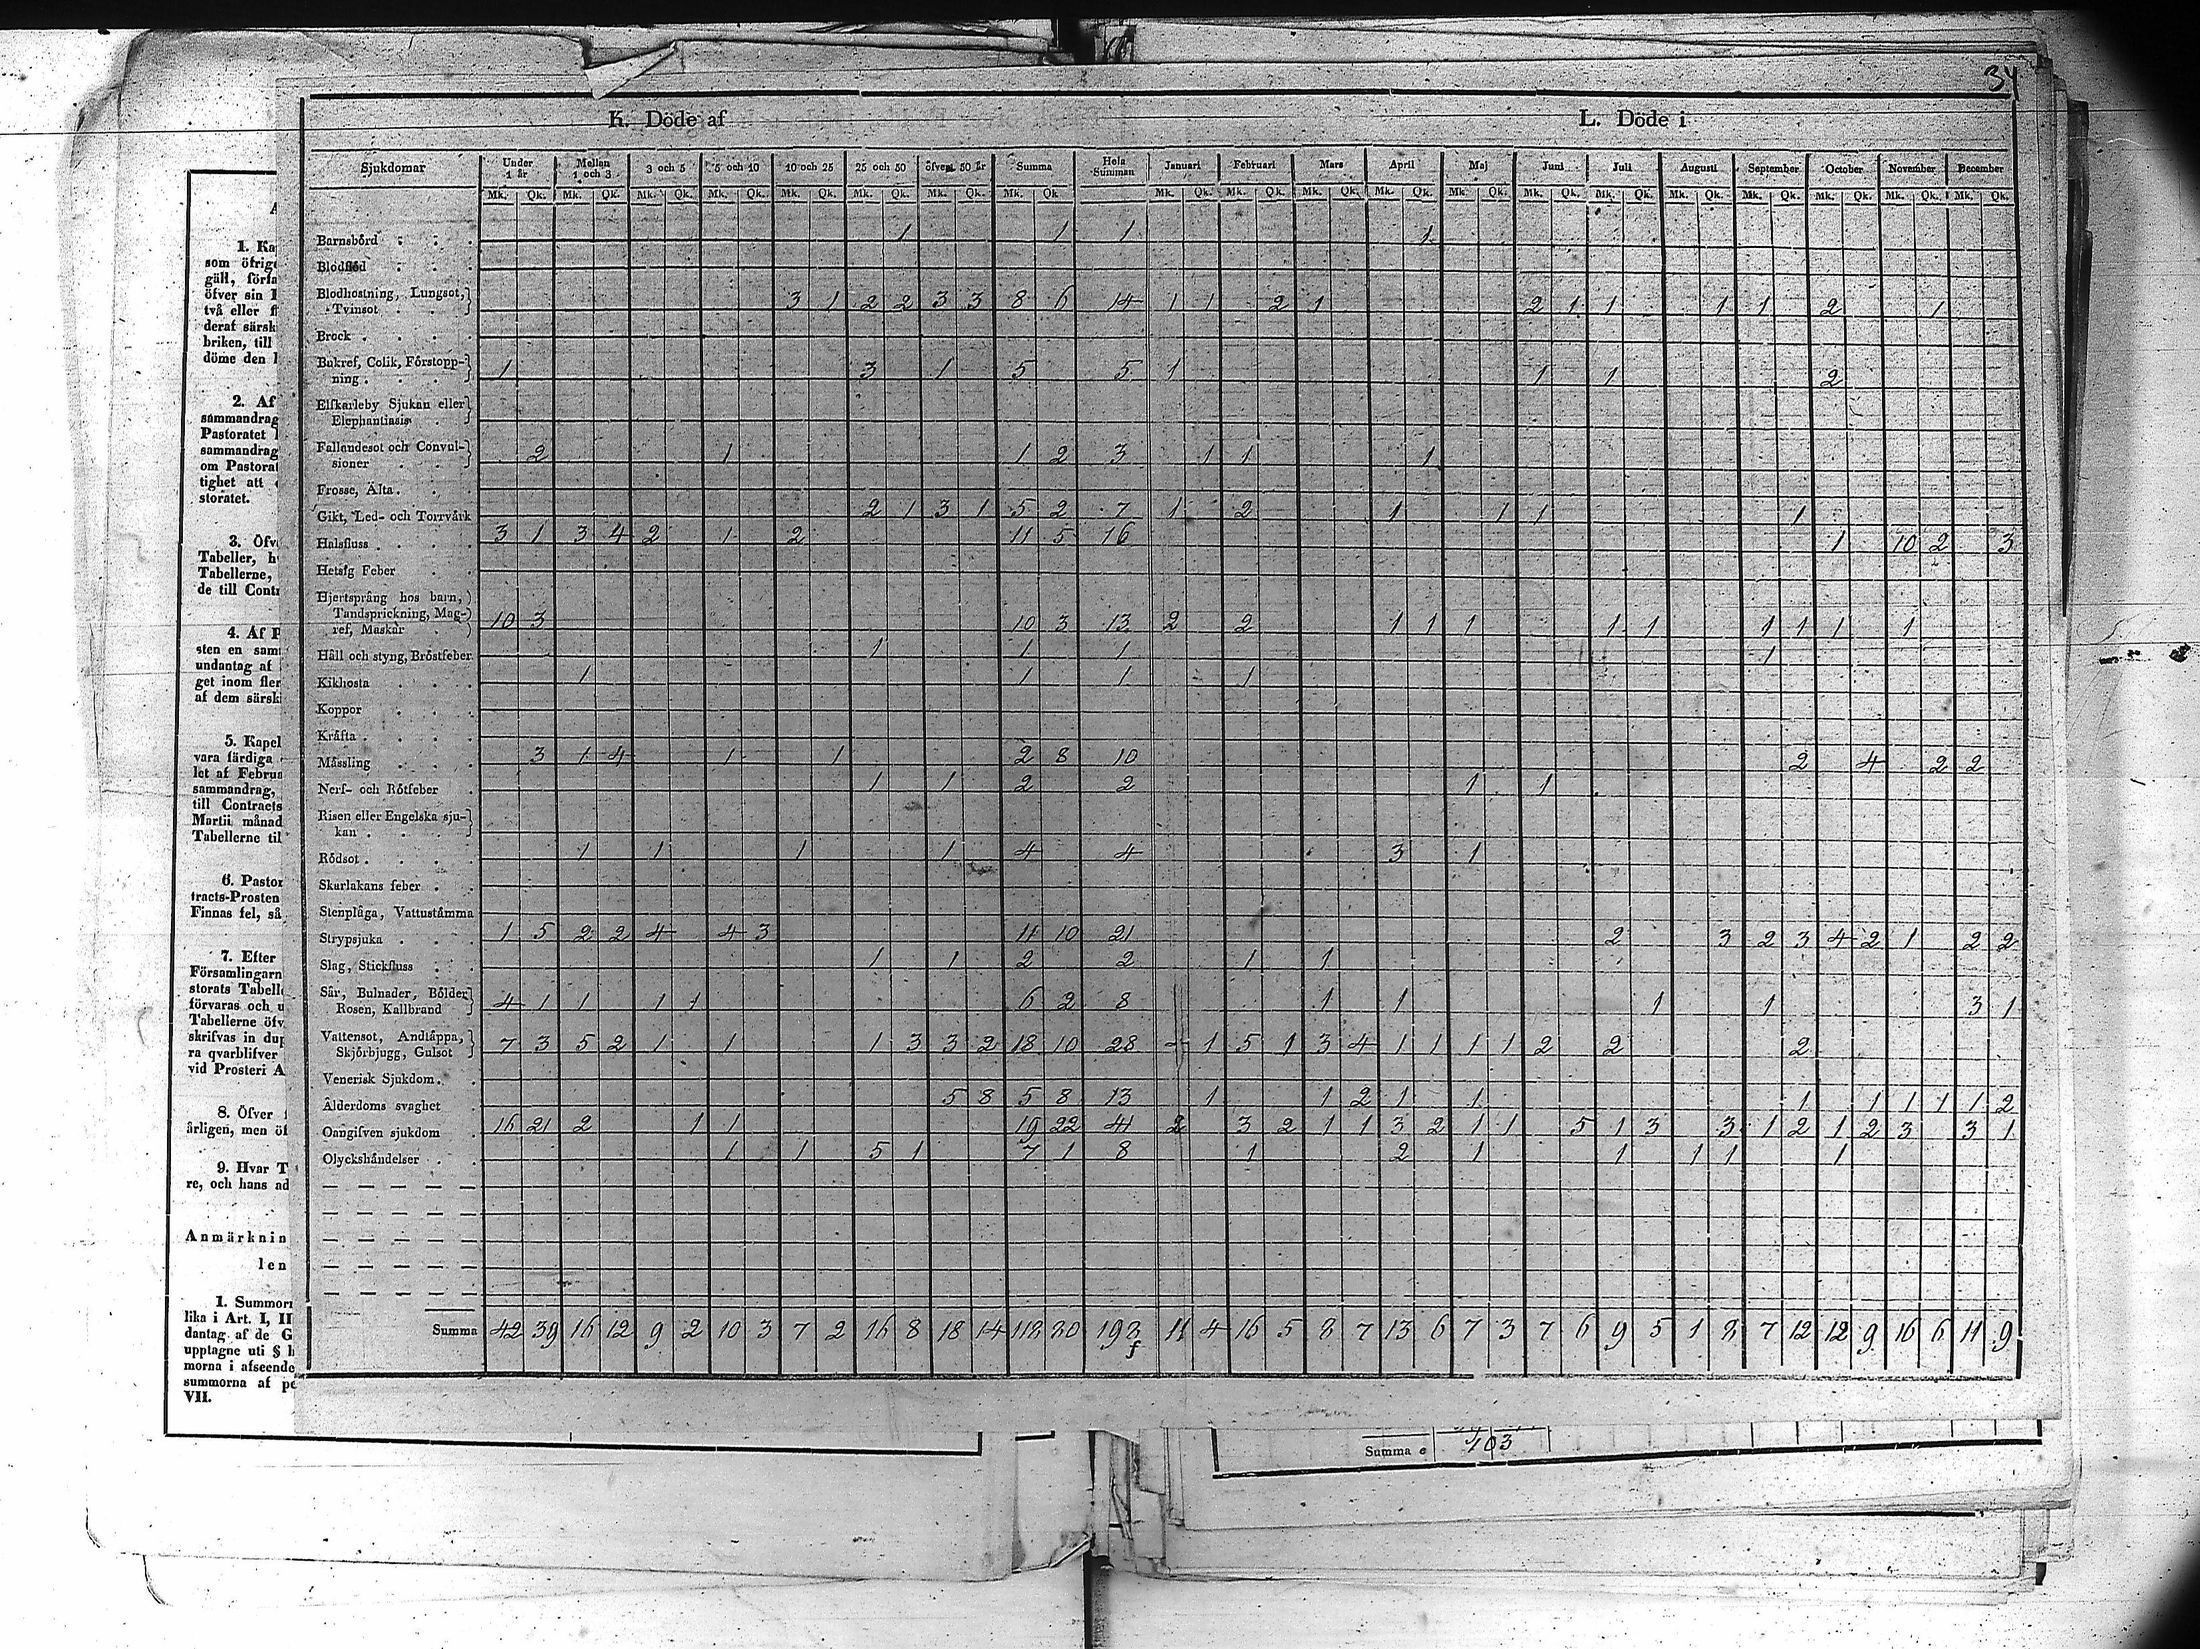 34
K. Döde af
L. Döde i
Sjukdomar Under 1 år Mellan 1 och 3 3 och 5 5 och 10 10 och 25 25 och 50 öfver 50 år Summa Hela Summan Januari Februari Mars April Maj Juni Juli Augusti September October November December
Mk. Qk. Mk. Qk. Mk. Qk. Mk. Qk. Mk. Qk. Mk. Qk. Mk. Qk. Mk. Qk Mk. Qk. Mk. Qk. Mk. Qk. Mk. Qk. Mk. Qk. Mk. Qk. Mk. Qk. Mk. Qk. Mk. Qk. Mk. Qk. Mk. Qk. Mk. Qk.
Barnsbörd 1 1 1 1
Blodflöd
Blodhostning, Lungsot,
Tvinsot 3 1 2 2 3 3 8 6 14 1 1 2 1 2 1 1 1 1 2 1
Brock
Bukref, Colik, Förstopp-
ning 1 3 1 5 5 1 1 1 2
Elfkarleby Sjukan eller
Elephantiasis
Fallandesot och Convul-
sioner 2 1 1 2 3 1 1 1
Frosse, Älta
Gikt, Led- och Torrvärk 2 1 3 1 5 2 7 1 2 1 1 1 1
Halsfluss 3 1 3 4 2 1 2 11 5 16 1 10 2 3
Hetsig Feber
Hjertsprång hos barn,
Tandsprickning, Mag-
ref, Maskar 10 3 10 3 13 2 2 1 1 1 1 1 1 1 1 1
Håll och styng, Bröstfeber 1 1 1 1
Kikhosta 1 1 1 1
Koppor
Kräfta
Mässling 3 1 4 1 1 2 8 10 2 4 2 2
Nerf- och Rötfeber 1 1 2 2 1 1
Risen eller Engelska sju-
kan
Rödsot 1 1 1 1 4 4 3 1
Skarlakans feber
Stenplåga, Vattustämma
Strypsjuka 1 5 2 2 4 4 3 11 10 21 2 3 2 3 4 2 1 2 2
Slag, Stickfluss 1 1 2 2 1 1
Sår, Bulnader, Bölder
Rosen, Kallbrand 4 1 1 1 1 6 2 8 1 1 1 1 3 1
Vattensot, Andtäppa,
Skjörbjugg, Gulsot 7 3 5 2 1 1 1 3 3 2 18 10 28 1 5 1 3 4 1 1 1 1 2 2 2
Venerisk Sjukdom
Ålderdoms svaghet 5 8 5 8 13 1 1 2 1 1 1 1 1 1 1 2
Oangifven sjukdom 16 21 2 1 1 19 22 41 2 3 2 1 1 3 2 1 1 5 1 3 3 1 2 1 2 3 3 1
Olyckshändelser 1 1 5 1 7 1 8 1 2 1 1 1 1 1
Summa 42 39 16 12 9 2 10 3 7 2 16 8 18 14 118 80 198 11 4 16 5 8 7 13 6 7 3 7 6 9 5 1 8 7 12 12 9 16 6 11 9
f
1. Ka
som öfrige
gäll, förfa
öfver sin
två eller
deraf särsk
briken, till
döme den
2. Af
sammandrag
Pastoratet
sammandrag
om Pastorat
tighet att
storatet.
3. Öfv
Tabeller, h
Tabellerne,
de till Cont
4. Af P
sten en sam
undantag af
get inom fler
af dem särsk
5. Kapel
vara färdiga
let af Februa
sammandrag,
till Contracts
Martii månad
Tabellerne til
6. Pastor
tracts-Prosten
Finnas fel, så
7. Efter
Församlingarn
storats Tabell
förvaras och u
Tabellerne öfv
skrifvas in dup
ra qvarblifver
vid Prosteri A
8. Öfver
årligen, men öf
9. Hvar T
re, och hans ad
Anmärknin
len
1. Summor
lika i Art. I, II
dantag af de G
upptagne uti § h
morna i afseende
summorna af pe
VII.
Summa e 403